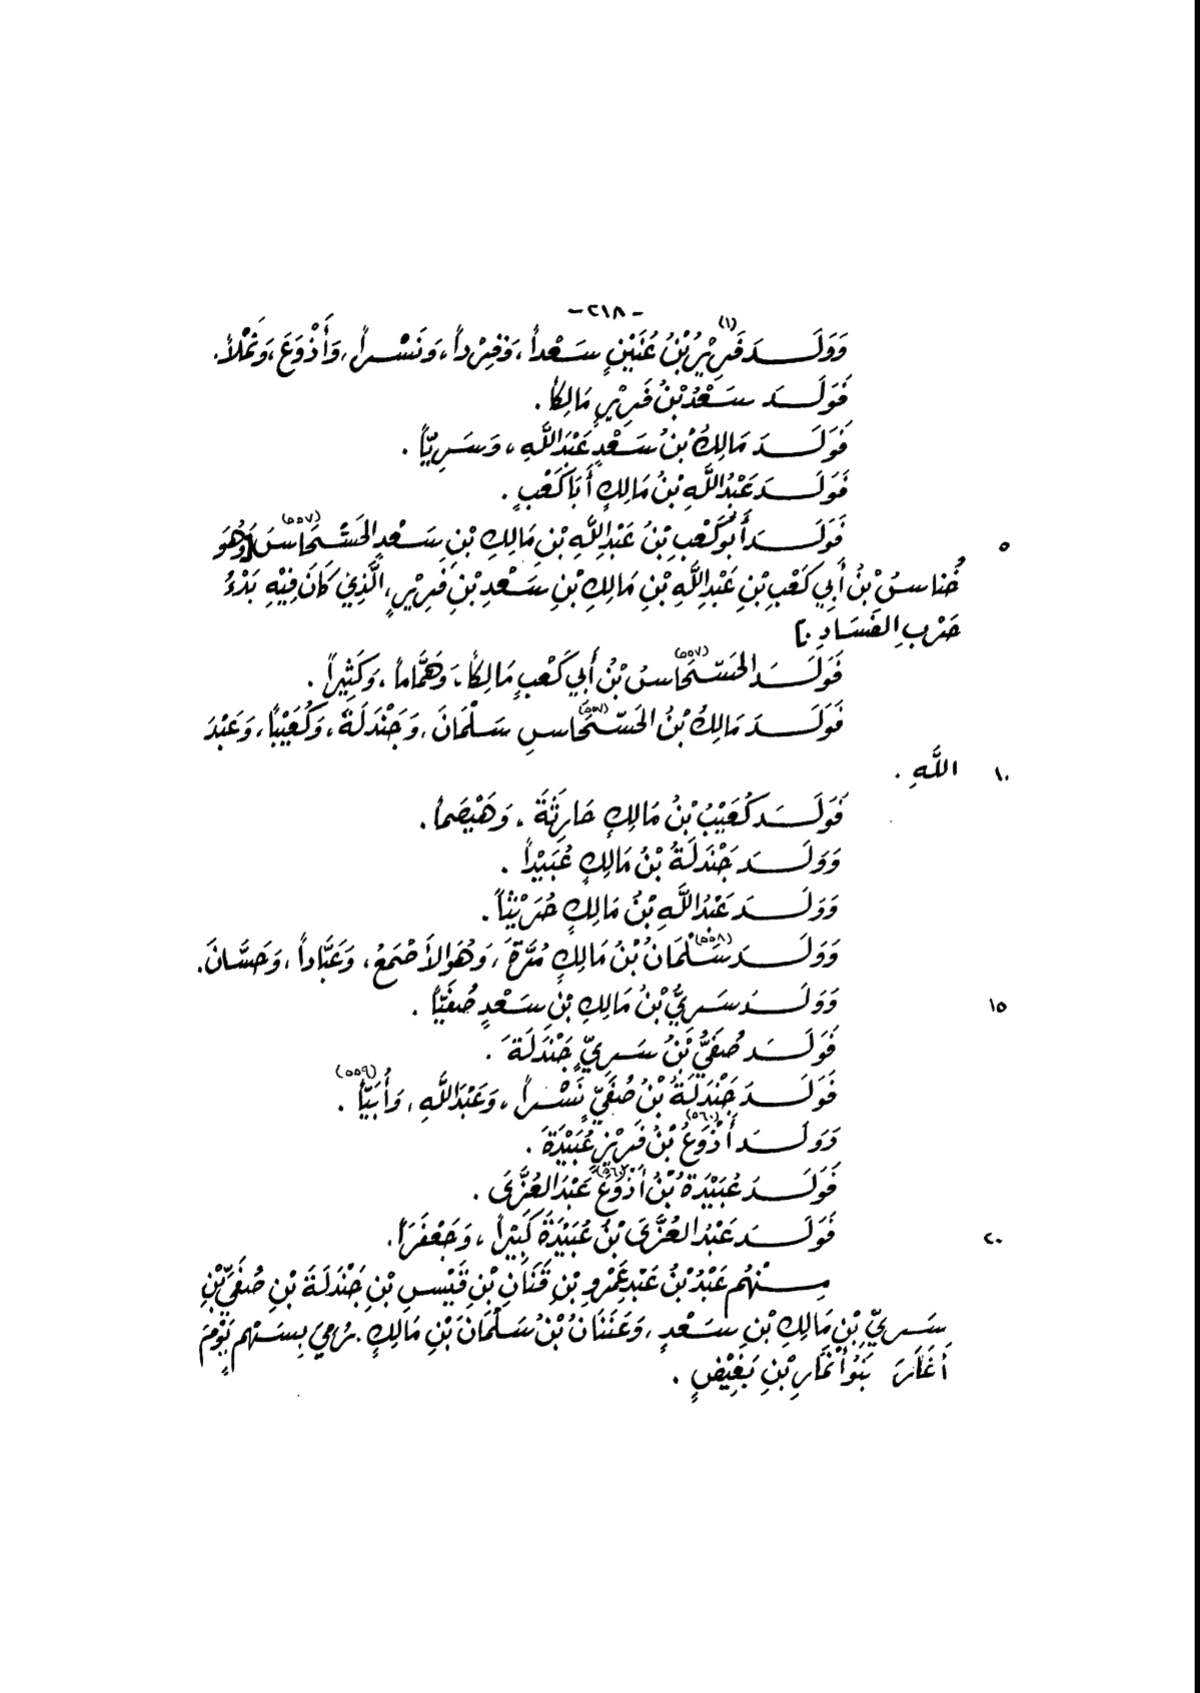 -٢١٨-
وَوَلَــدَ فَرِيْرُ بْنُ عُنَيْنٍ سَعْداً، وَفِرْداً، وَنَسْراً، وَأَذْوَعَ، وَنَمْلاً. (١)
فَوَلَــدَ سَعْدُ بْنُ فَرِيْرٍ مَالِكاً.
فَوَلَــدَ مَالِكُ بْنُ سَعْدٍ عَبْدَ اللَّهِ، وَسَرِيّاً.
فَوَلَــدَ عَبْدُ اللَّهِ بْنُ مَالِكٍ أَبَا كَعْبٍ.
فَوَلَــدَ أَبُو كَعْبِ بْنُ عَبْدِ اللَّهِ بْنِ مَالِكِ بْنِ سَعْدٍ الحَسْحَاسَ (٥٥٧) [وَهُوَ ٥
حُنَاسُ بْنُ أَبِي كَعْبِ بْنِ عَبْدِ اللَّهِ بْنِ مَالِكِ بْنِ سَعْدِ بْنِ فَرِيْرٍ، الَّذِي كَانَ فِيْهِ بَدْءُ
حَرْبِ الفَسَادِ.]
فَوَلَــدَ الحَسْحَاسُ (٥٥٧) بْنُ أَبِي كَعْبٍ مَالِكاً، وَهَمَّاماً، وَكَثِيراً.
فَوَلَــدَ مَالِكُ بْنُ الحَسْحَاسِ (٥٥٧) سَلْمَانَ، وَجَنْدَلَةَ، وَكُعَيْباً، وَعَبْدَ
اللَّهِ. ١٠
فَوَلَــدَ كُعَيْبُ بْنُ مَالِكٍ حَارِثَةَ، وَهَيْصَماً.
وَوَلَــدَ جَنْدَلَةُ بْنُ مَالِكٍ عُبَيْداً.
وَوَلَــدَ عَبْدُ اللَّهِ بْنُ مَالِكٍ حُرَيْثاً.
وَوَلَــدَ سَلْمَانُ (٥٥٨) بْنُ مَالِكٍ مُرَّةَ، وَهُوَ الأَصْمَعُ، وَعَبَّاداً، وَحَسَّانَ.
وَوَلَــدَ سَرِيُّ بْنُ مَالِكِ بْنِ سَعْدٍ صُفَيّاً. ١٥
فَوَلَــدَ صُفَيُّ بْنُ سَرِيٍّ جَنْدَلَةَ.
فَوَلَــدَ جَنْدَلَةُ بْنُ صُفَيٍّ نَسْراً، وَعَبْدَ اللَّهِ، وَأُبَيّاً (٥٥٩).
وَوَلَــدَ أَذْوَعُ (٥٦٠) بْنُ فَرِيْرٍ عُبَيْدَةَ.
فَوَلَــدَ عُبَيْدَةُ بْنُ أَذْوَعَ (٥٦٠) عَبْدَ العُزَّى.
فَوَلَــدَ عَبْدُ العُزَّى بْنُ عُبَيْدَةَ كَبِيْراً، وَجَعْفَراً. ٢٠
مِــنْهُم عَبْدُ بْنُ عَبْدِ عَمْرِو بْنِ قَنَانِ بْنِ قَيْسِ بْنِ جَنْدَلَةَ بْنِ صُفَيِّ بْنِ
سَرِيِّ بْنِ مَالِكِ بْنِ سَعْدٍ، وَعَنَانُ بْنُ سَلْمَانَ بْنِ مَالِكٍ. رُمِيَ بِسَهْمٍ يَوْمَ
أَغَارَ بَنُو أَنْمَارِ بْنِ بَغِيْضٍ.